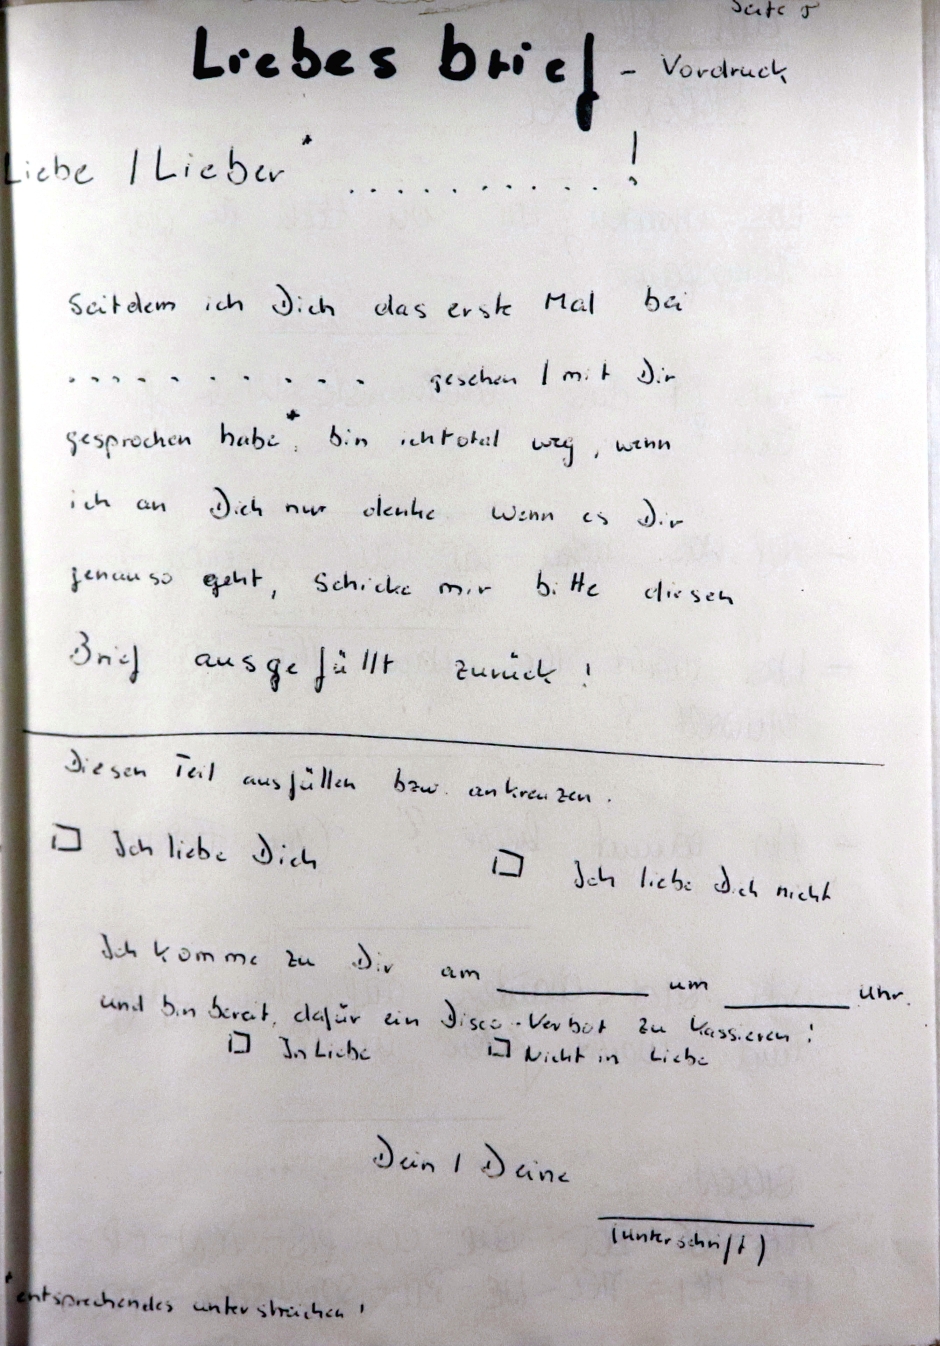 Seite 5
Liebesbrief - Vordruck
Liebe / Lieber* . . . . . . . . . . !
Seitdem ich Dich das erste Mal bei
. . . . . . . . . . . . gesehen / mit Dir
gesprochen habe*, bin ich total weg, wenn
ich an Dich nur denke Wenn es Dir
genauso geht, Schicke mir bitte diesen
Brief ausgefüllt zurück!
Diesen Teil ausfüllen bzw. ankreuzen.
☐ Ich liebe Dich ☐ Ich liebe Dich nicht
Ich komme zu Dir am ________ um ________ Uhr.
und bin bereit, dafür ein Disco-Verbot zu kassieren!
☐ In Liebe ☐ Nicht in Liebe
Dein / Deine
________
(unterschrift)
*entsprechendes unterstreichen!